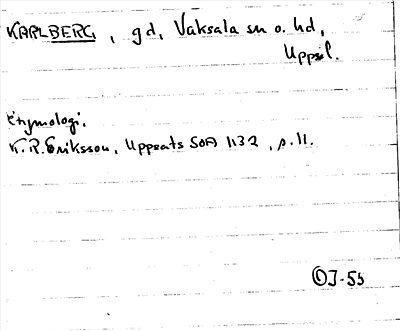 KARLBERG, gd, Vaksala sn o. hd,
Uppsl.
Etymologi.
K.R. Eriksson, Uppsats SOA 1132, s. 11.
OJ-55